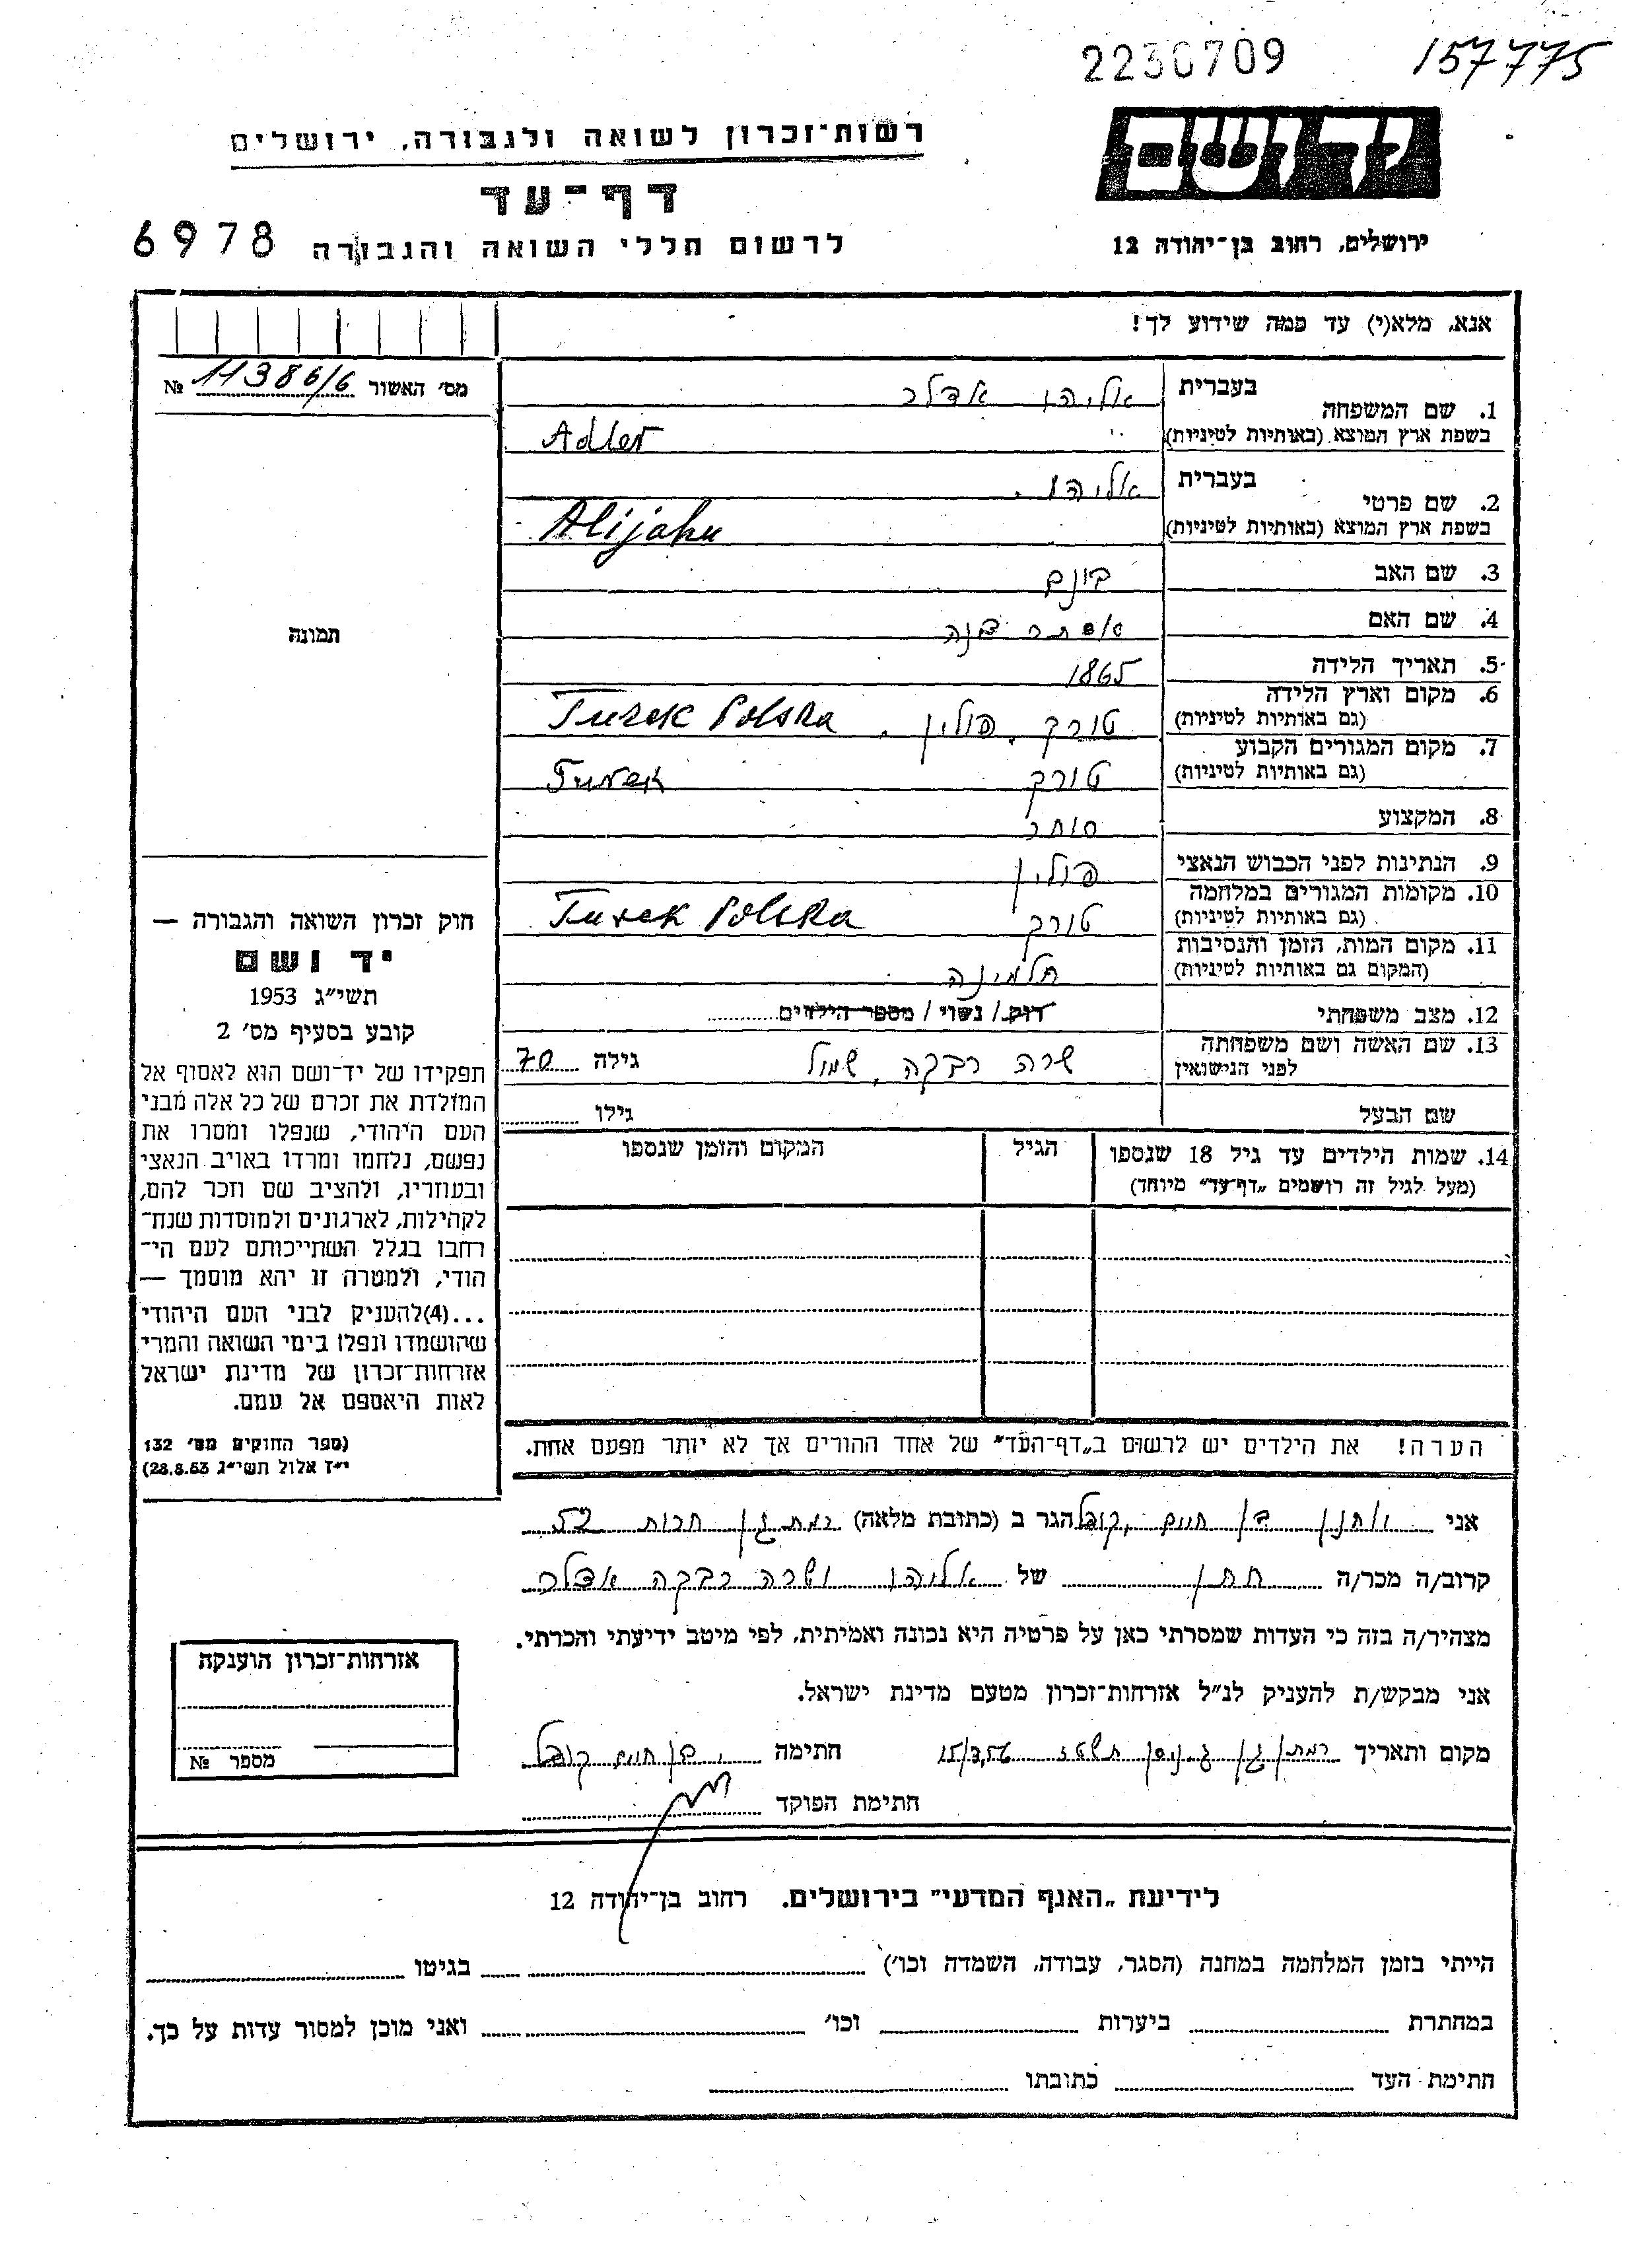 2236709 157775
יד ושם
רשות־זכרון לשואה ולגבורה, ירושלים
דף־עד
ירושלים, רחוב בן־יהודה 12
לרשום חללי השואה והגבורה 6978
אנא, מלא(י) עד כמה שידוע לך!
מס׳ האשור 11386/6 №
1. שם המשפחה בעברית אליהו אדלר
בשפת ארץ המוצא (באותיות לטיניות) Adler
2. שם פרטי בעברית אליהו
בשפת ארץ המוצא (באותיות לטיניות) Alijahu
3. שם האב בונם
4. שם האם אסתר
5. תאריך הלידה 1865
6. מקום וארץ הלידה
(גם באותיות לטיניות) טורק, פולין. Turek Polska
7. מקום המגורים הקבוע
(גם באותיות לטיניות) טורק Turek
8. המקצוע סוחר
9. הנתינות לפני הכבוש הנאצי פולין
10. מקומות המגורים במלחמה
(גם באותיות לטיניות) טורק Turek Polska
11. מקום המות, הזמן והנסיבות
(המקום גם באותיות לטיניות) חלמינה
12. מצב משפחתי רוק / נשוי / מספר הילדים
13. שם האשה ושם משפחתה
לפני הנישואין שרה רבקה, שמול גילה 70
שם הבעל גילו
14. שמות הילדים עד גיל 18 שנספו הגיל המקום והזמן שנספו
(מעל לגיל זה רושמים „דף־עד” מיוחד)
הערה! את הילדים יש לרשום ב„דף־העד” של אחד ההורים אך לא יותר מפעם אחת.
תמונה
חוק זכרון השואה והגבורה —
יד ושם
תשי״ג 1953
קובע בסעיף מס׳ 2
תפקידו של יד־ושם הוא לאסוף אל
המולדת את זכרם של כל אלה מבני
העם היהודי, שנפלו ומסרו את
נפשם, נלחמו ומרדו באויב הנאצי
ובעוזריו, ולהציב שם וזכר להם,
לקהילות, לארגונים ולמוסדות שנח־
רבו בגלל השתייכותם לעם הי־
הודי, ולמטרה זו יהא מוסמך —
...(4) להעניק לבני העם היהודי
שהושמדו ונפלו בימי השואה והמרי
אזרחות־זכרון של מדינת ישראל
לאות היאספם אל עמם.
(ספר החוקים מס׳ 132
י״ז אלול תשי״ג 28.8.53)
אני בן חיים, קופל הגר ב (כתובת מלאה) רמת גן חרות 52
קרוב/ה מכר/ה חתן של אליהו ושרה רבקה אדלר
מצהיר/ה בזה כי העדות שמסרתי כאן על פרטיה היא נכונה ואמיתית, לפי מיטב ידיעתי והכרתי.
אני מבקש/ת להעניק לנ״ל אזרחות־זכרון מטעם מדינת ישראל.
מקום ותאריך רמת גן ג. ניסן תשטז 15/3,56 חתימה י. בן חיים קופל
חתימת הפוקד
אזרחות־זכרון הוענקה
מספר №
לידיעת „האגף המדעי” בירושלים. רחוב בן־יהודה 12
הייתי בזמן המלחמה במחנה (הסגר, עבודה, השמדה וכו׳) בגיטו
במחתרת ביערות וכו׳ ואני מוכן למסור עדות על כך.
חתימת העד כתובתו